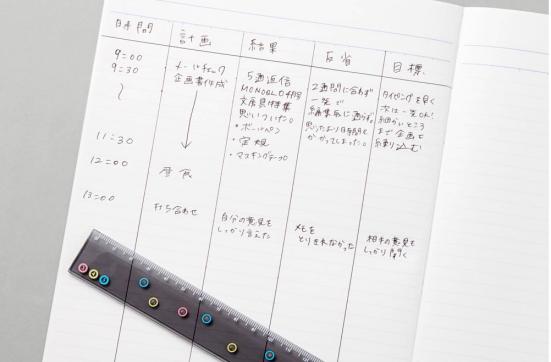 時間 計画 結果 反省 目標
9:00 メールチェック
9:30 企画書作成
5通返信
MONOBLOG用
文房具特集
思いついた。
・ボールペン
・定規
・マスキングテープ
2通間に合わず
一発で
編集長に通らず。
思ったより時間が
かかってしまった。
タイピングを早く
次は一発OK!
細かいところ
まで企画を
練り込む
〜
11:30
12:00 昼食
13:00 打ち合わせ
自分の意見を
しっかり言えた
メモを
とりきれなかった
相手の意見を
しっかり聞く